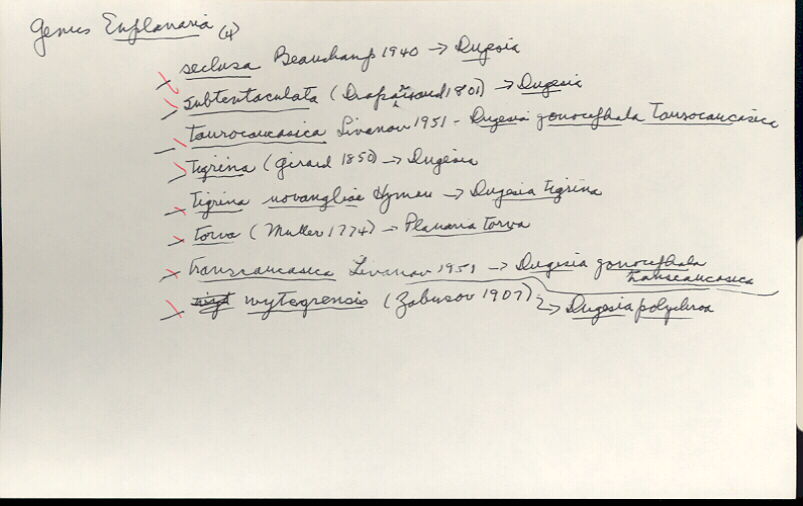 Genus Euplanaria (4)
seclusa Beauchamp 1940 → Dugesia
subtentaculata (Draparnaud 1801) → Dugesia
taurocaucasica Livanov 1951 - Dugesia gonocephala Taurocaucasica
tigrina (Girard 1850) → Dugesia
tigrina novangliae Hyman → Dugesia tigrina
torva (Muller 1774) → Planaria torva
transcaucasica Livanov 1951 → Dugesia gonocephala
transcaucasica
wytegrensis (Zabusov 1907) → Dugesia polychroa